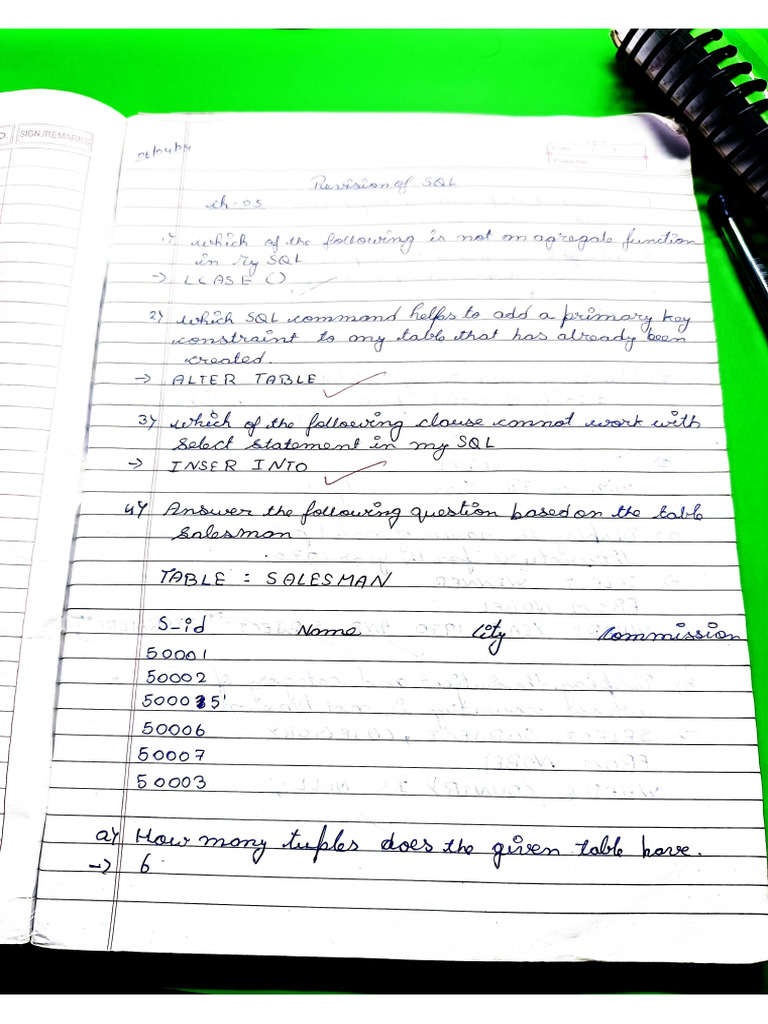 O. SIGN /REMARKS
Revision of SQL
ch-05
1) which of the following is not an agregate function
in My SQL
→ LCASE ()
2) which SQL command helps to add a primary key
constraint to any table that has already been
created.
→ ALTER TABLE
3) which of the following clause cannot work with
select statement in my SQL
→ INSER INTO
4) Answer the following question based on the table
Salesman
TABLE : SALESMAN
S_id Name City Commission
50001
50002
50005
50006
50007
50003
a) How many tuples does the given table have.
→ 6